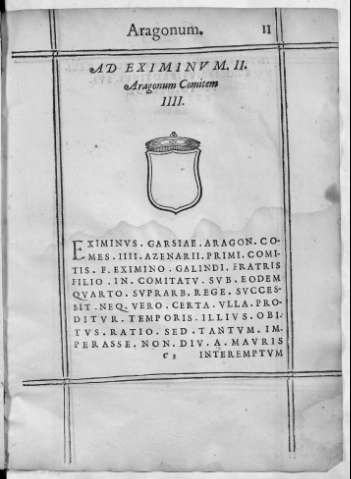 Aragonum. 11
AD EXIMINVM. II.
Aragonum Comitem
IIII.
EXIMINVS. GARSIAE. ARAGON. CO-
MES. IIII. AZENARII. PRIMI. COMI-
TIS. F. EXIMINO. GALINDI. FRATRIS
FILIO. IN. COMITATV. SVB. EODEM
QVARTO. SVPRARB. REGE. SVCCES-
SIT. NEQ. VERO. CERTA. VLLA. PRO-
DITVR. TEMPORIS. ILLIVS. OBI-
TVS. RATIO. SED. TANTVM. IM-
PERASSE. NON. DIV. A. MAVRIS
C 2 INTEREMPTVM